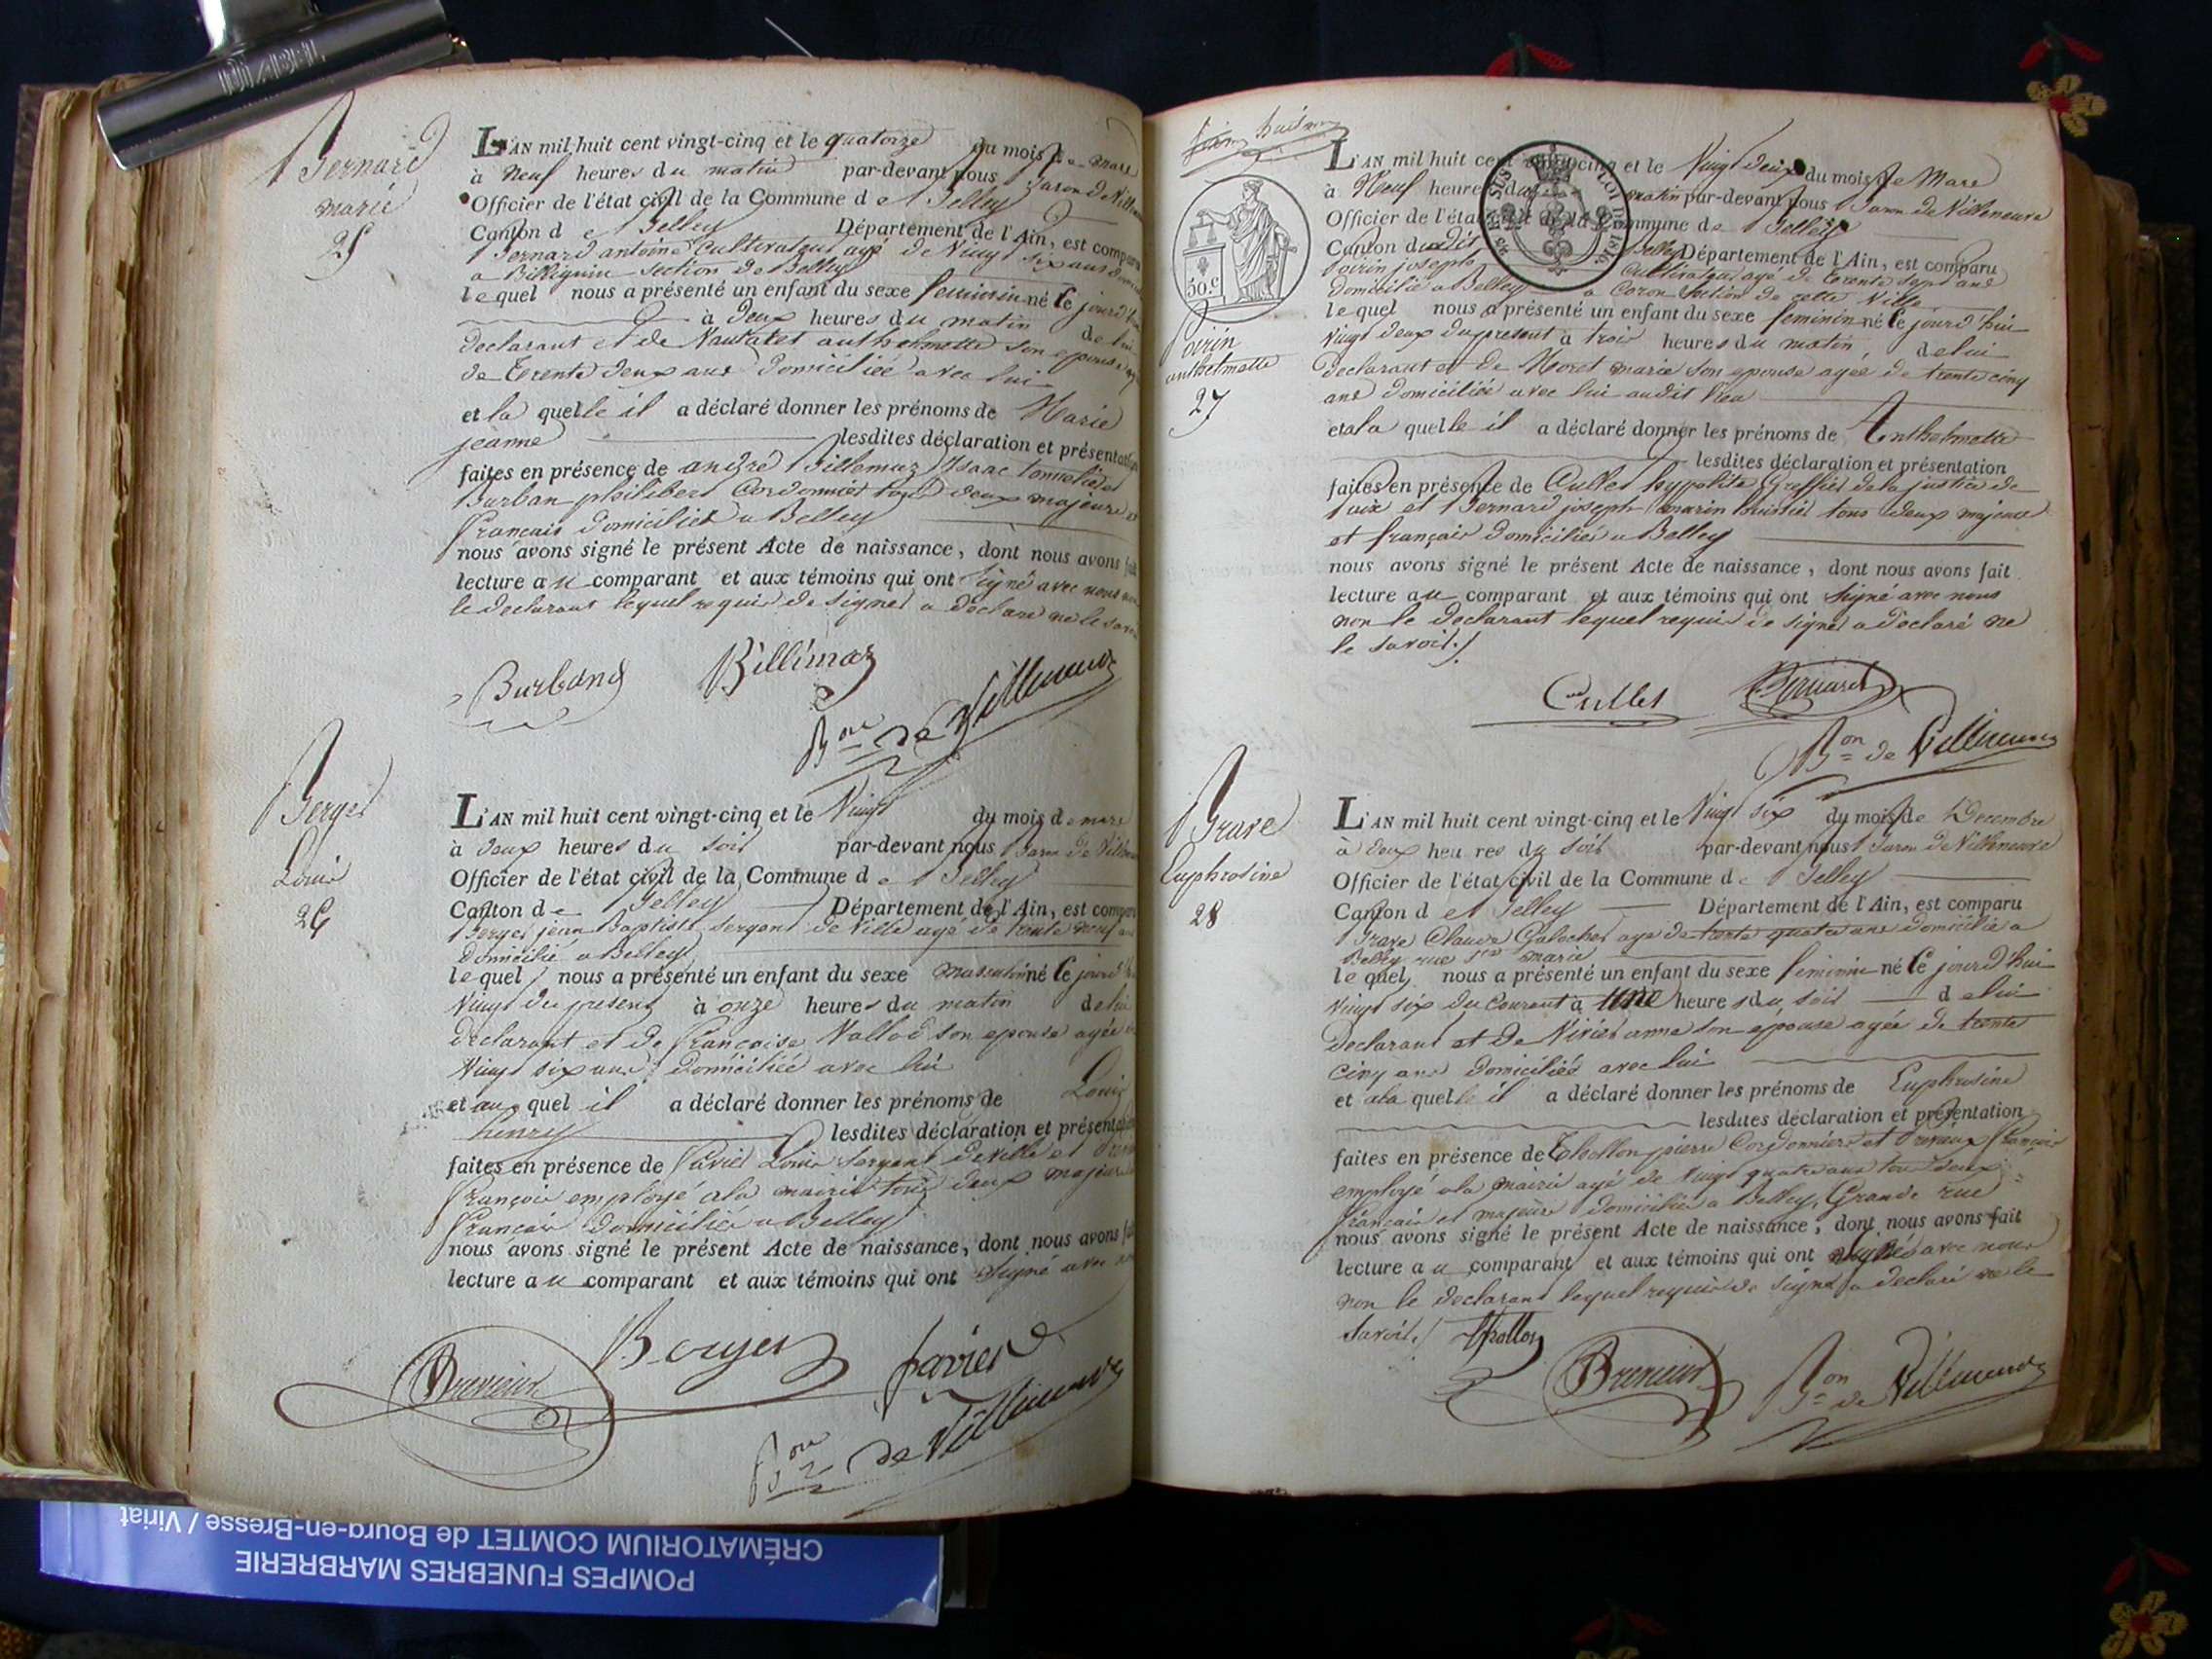 Bernard
marie
25
L'AN mil huit cent vingt-cinq et le quatorze du mois de mars
à Neuf heures du matin par-devant nous Baron de Villen
Officier de l'état civil de la Commune de Belley
Canton de Belley Département de l'Ain, est comparu
Bernard antoine Cultivateur agé de Vingt six ans
a Billignin Section de Belley
lequel nous a présenté un enfant du sexe feminin né le jourd'hui
à deux heures du matin de lui
declarant et de anthelmette son epouse
de trente deux ans domiciliée avec lui
et la quelle il a déclaré donner les prénoms de Marie
jeanne lesdites déclaration et présentation
faites en présence de andré Billemaz Isaac tonnelier et
Burban philibert Cordonnier tous deux majeurs et
français domiciliés a Belley
nous avons signé le présent Acte de naissance, dont nous avons fait
lecture au comparant et aux témoins qui ont signé avec nous non
le declarant lequel requis de signer a déclaré ne le savoir
Burband Billimaz
Bon de Villeneuve
Berger
Louis
26
L'AN mil huit cent vingt-cinq et le Vingt du mois de mars
à deux heures du soir par-devant nous Baron de Villen
Officier de l'état civil de la Commune de Belley
Canton de Belley Département de l'Ain, est comparu
Berger jean Baptiste sergent de Ville agé de trente neuf ans
domicilié a Belley
lequel nous a présenté un enfant du sexe masculin né le jourd'hui
Vingt du present à onze heures du matin de lui
declarant et de françoise Vallod son epouse agée de
Vingt six ans domiciliée avec lui
et au quel il a déclaré donner les prénoms de Louis
henry lesdites déclaration et présentation
faites en présence de favier Louis sergent de ville et
françois employé a la mairie tous deux majeurs
français domiciliés a Belley
nous avons signé le présent Acte de naissance, dont nous avons fait
lecture au comparant et aux témoins qui ont signé avec
Berger favier
Bon de Villeneuve
30.c
LOI DE 1816
Poirin
anthelmette
27
L'AN mil huit cent vingt-cinq et le Vingt deux du mois de Mars
à Neuf heures du matin par-devant nous Baron de Villeneuve
Officier de l'état civil de la Commune de Belley
Canton dudit Belley Département de l'Ain, est comparu
Poirin joseph Cultivateur agé de trente sept ans
domicilié a Belley a Coron Section de cette Ville
lequel nous a présenté un enfant du sexe feminin né le jourd'hui
Vingt deux du present à trois heures du matin, de lui
declarant et de Moret marie son epouse agée de trente cinq
ans domiciliée avec lui audit lieu
et a la quelle il a déclaré donner les prénoms de Anthelmette
lesdites déclaration et présentation
faites en présence de Cullet hyppolite Greffier de la justice de
paix et Bernard joseph marin huissier tous deux majeurs
et français domiciliés a Belley
nous avons signé le présent Acte de naissance, dont nous avons fait
lecture au comparant et aux témoins qui ont signé avec nous
non le declarant lequel requis de signer a declaré ne
le savoir./
Cullet Bernard
Bon de Villeneuve
Grave
Euphrosine
28
L'AN mil huit cent vingt-cinq et le Vingt six du mois de Decembre
à deux heures du soir par-devant nous Baron de Villeneuve
Officier de l'état civil de la Commune de Belley
Canton de Belley Département de l'Ain, est comparu
Grave Claude Galochet agé de trente quatre ans domicilié a
Belley rue Ste marie
lequel nous a présenté un enfant du sexe feminin né le jourd'hui
Vingt six du Courant à une heures du soir de lui
declarant et de Vivier anne son epouse agée de trente
cinq ans domiciliés avec lui
et a la quelle il a déclaré donner les prénoms de Euphrosine
lesdites déclaration et présentation
faites en présence de Thollon pierre Cordonnier et françois
employé a la mairie agé de Vingt quatre ans tous deux
français et majeurs domiciliés a Belley, Grande rue
nous avons signé le présent Acte de naissance, dont nous avons fait
lecture au comparant et aux témoins qui ont signés avec nous
non le declarant lequel requis de signer a declaré ne le
savoir./ thollon
Bon de Villeneuve
POMPES FUNEBRES MARBRERIE
CRÉMATORIUM COMTET de Bourg-en-Bresse / Viriat